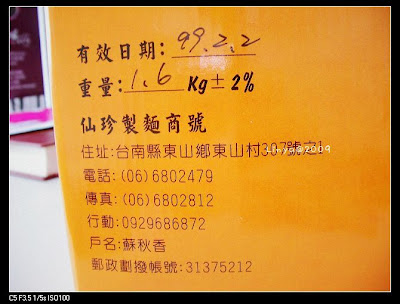 有效日期: 99.2.2
重量: 1.6 Kg±2%
仙珍製麵商號
住址:台南縣東山鄉東山村307號之1
電話: (06)6802479
傳真: (06)6802812
行動: 0929686872
戶名:蘇秋香
郵政劃撥帳號:31375212
C5 F3.5 1/5s ISO100